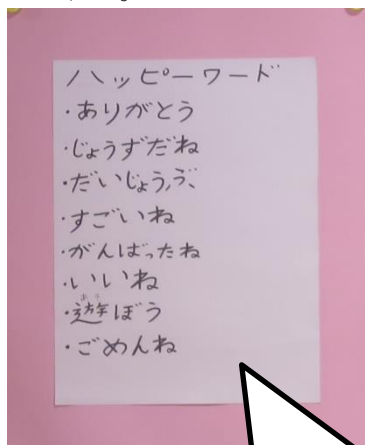 ハッピーワード
・ありがとう
・じょうずだね
・だいじょうぶ
・すごいね
・がんばったね
・いいね
・遊ぼう
・ごめんね